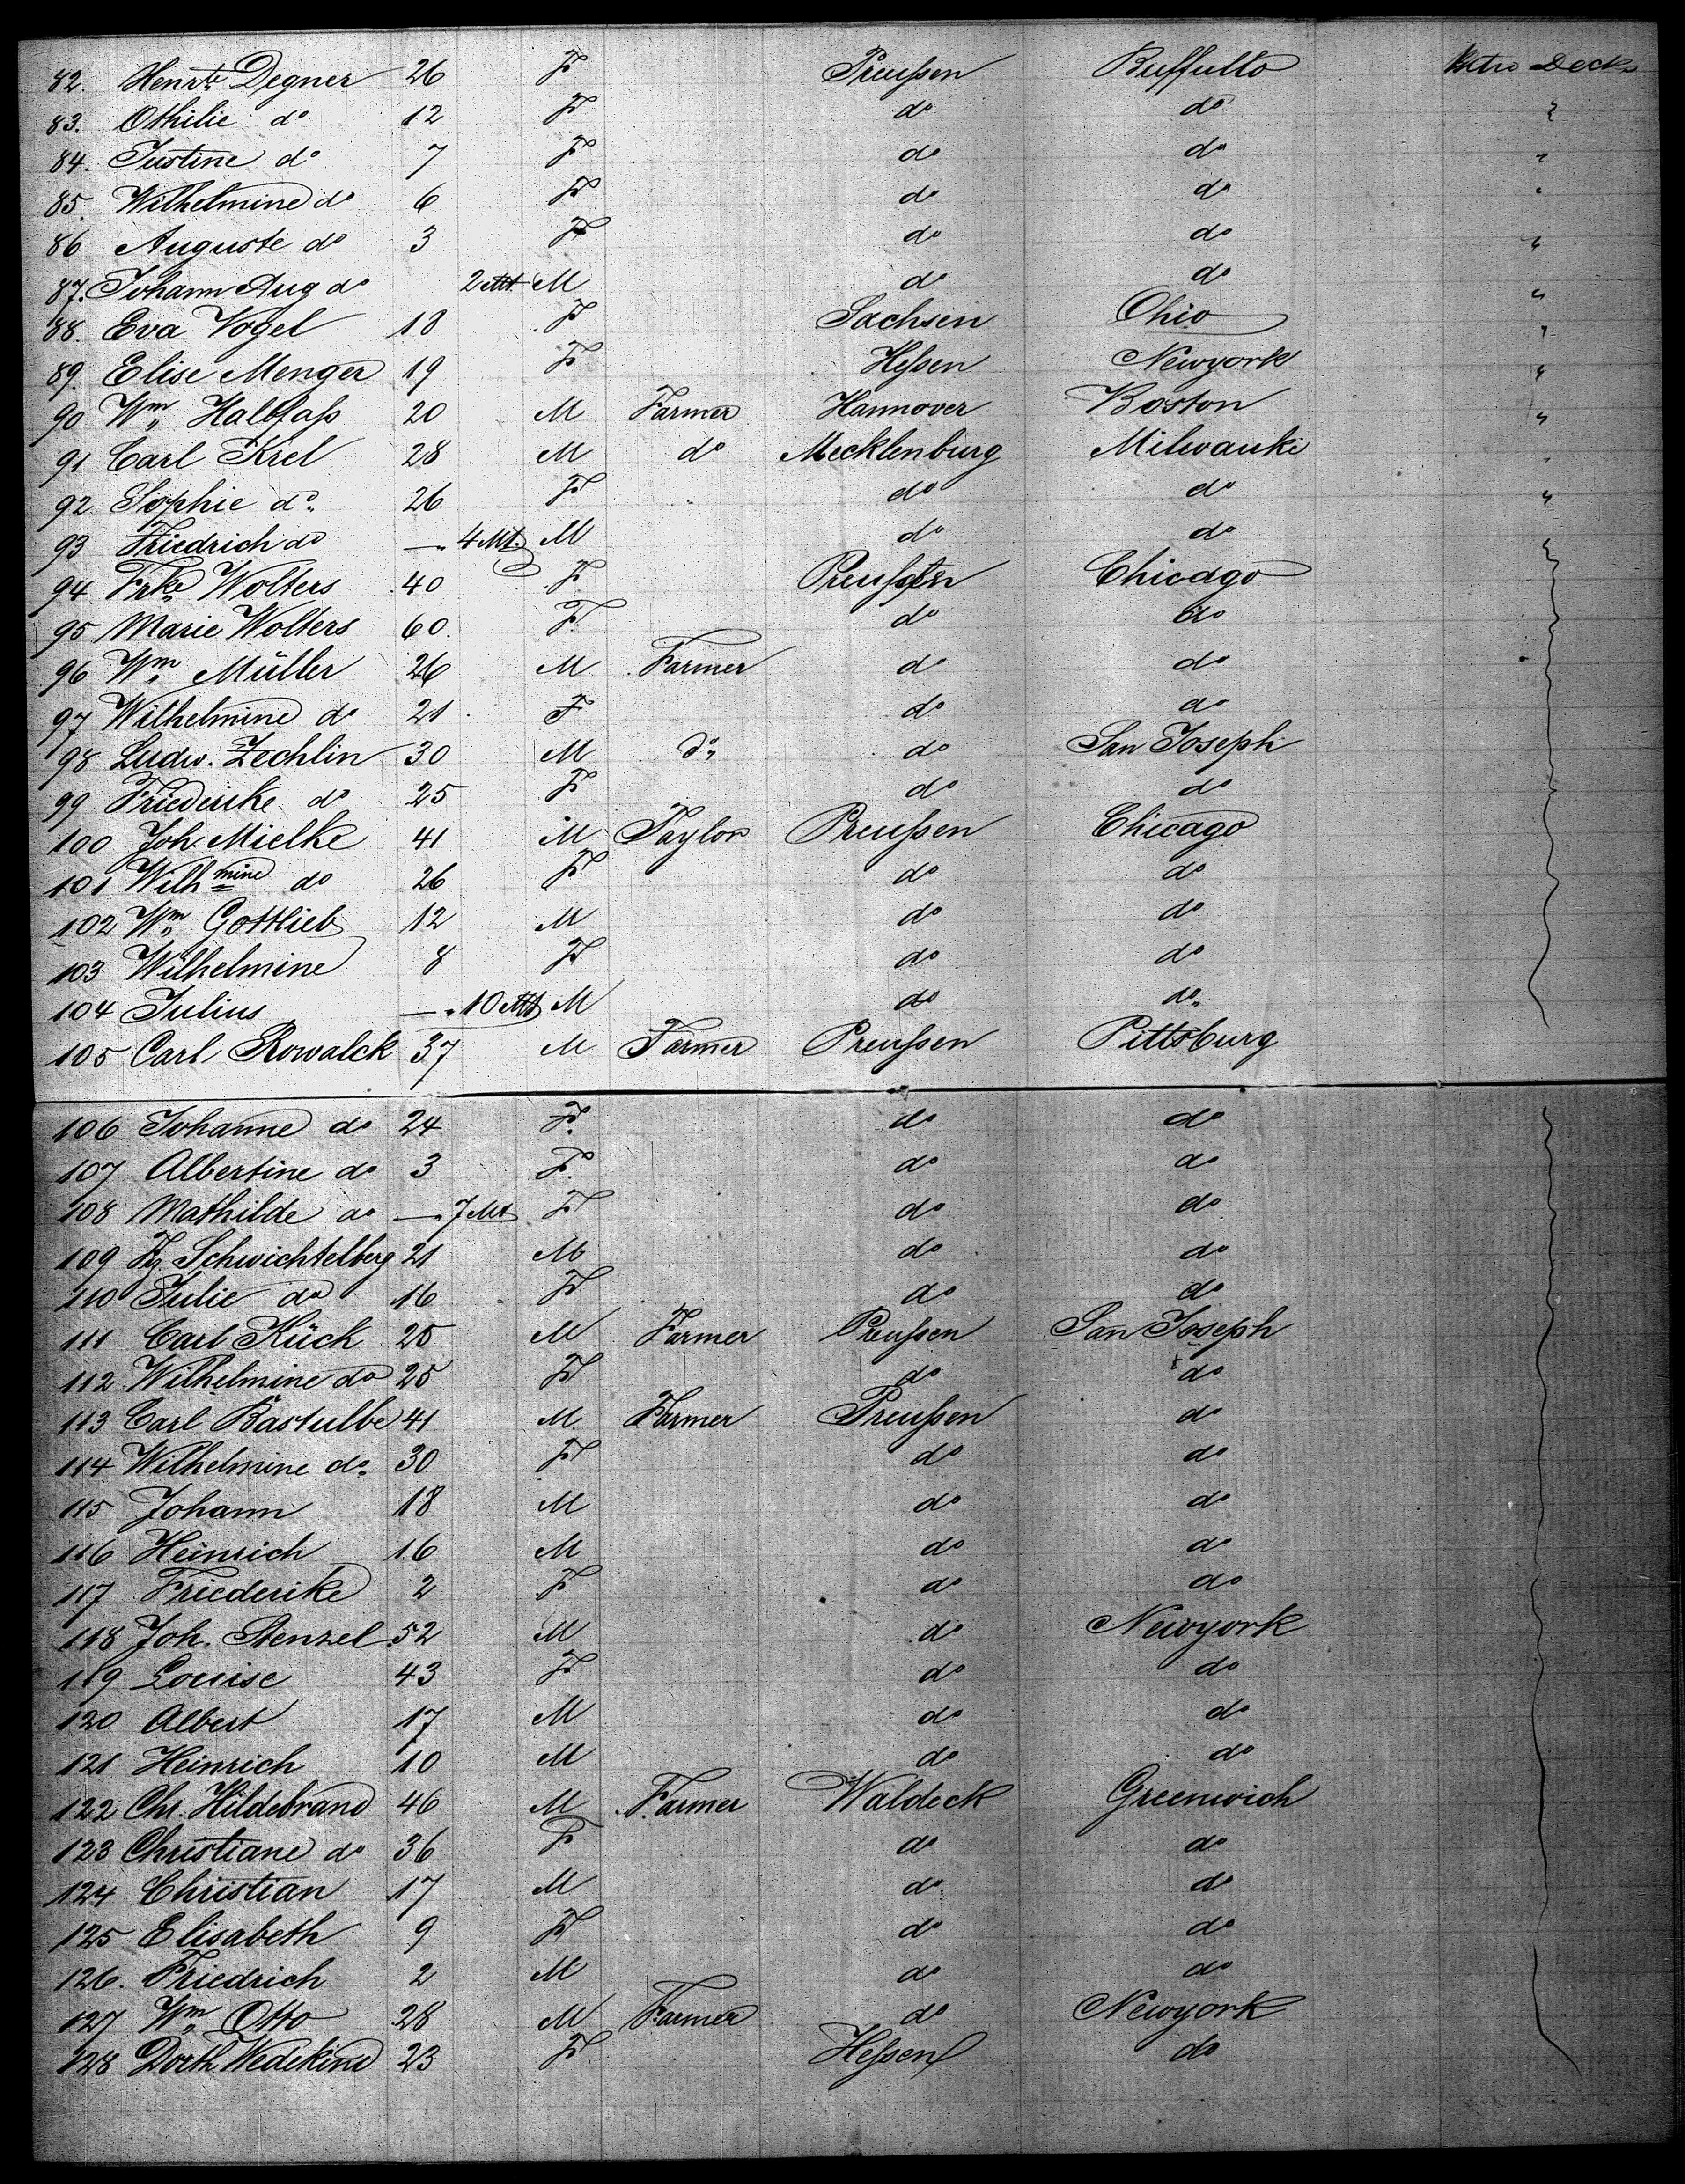 82. Henrte Degner 26 F Preußen Buffullo Deck
83. Othilie do 12 F do do "
84. Justine do 7 F do do "
85. Wilhelmine do 6 F do do "
86 Auguste do 3 F do do "
87. Johann Aug do 2 Mt M do do "
88. Eva Vogel 18 F Sachsen Ohio "
89. Elise Menger 19 F Heßen Newyork "
90 Wm Halbfaß 20 M Farmer Hannover Boston "
91 Carl Krel 28 M do Mecklenburg Milwauki "
92 Sophie do 26 F do do "
93 Friedrich do — 4 Mt. M do do
94 Frke Wolters 40 F Preußen Chicago
95 Marie Wolters 60. F. do do
96 Wm Müller 26 M Farmer do do
97 Wilhelmine do 21 F do do
98 Ludw. Zechlin 30 M do do San Joseph
99 Friederike do 25 F do do
100 Joh. Mielke 41 M Taylor Preußen Chicago
101 Wilhmine do 26 F do do
102 Wm Gottlieb 12 M do do
103 Wilhelmine 8 F do do
104 Julius — 10 Mt M do do
105 Carl Rowalck 37 M Farmer Preußen Pittsburg
106 Johanne do 24 F. do do
107 Albertine do 3 F. do do
108 Mathilde do — 7 Mt F do do
109 Schwichtelberg 21 M do do
110 Julie do 16 F do do
111 Carl Kück 25 M Farmer Preußen San Joseph
112 Wilhelmine do 25 F do do
113 Carl Bastulbe 41 M Farmer Preußen do
114 Wilhelmine do 30 F do do
115 Johann 18 M do do
116 Heinrich 16 M do do
117 Friederike 2 F do do
118 Joh. Stenzel 52 M do Newyork
119 Louise 43 F do do
120 Albert 17 M do do
121 Heinrich 10 M do do
122 Chr. Hildebrand 46 M Farmer Waldeck Greenwich
123 Christiane do 36 F do do
124 Christian 17 M do do
125 Elisabeth 9 F do do
126. Friedrich 2 M do do
127 Wm Otto 28 M Farmer do Newyork
128 Dorth Wedekind 23 F Heßen do